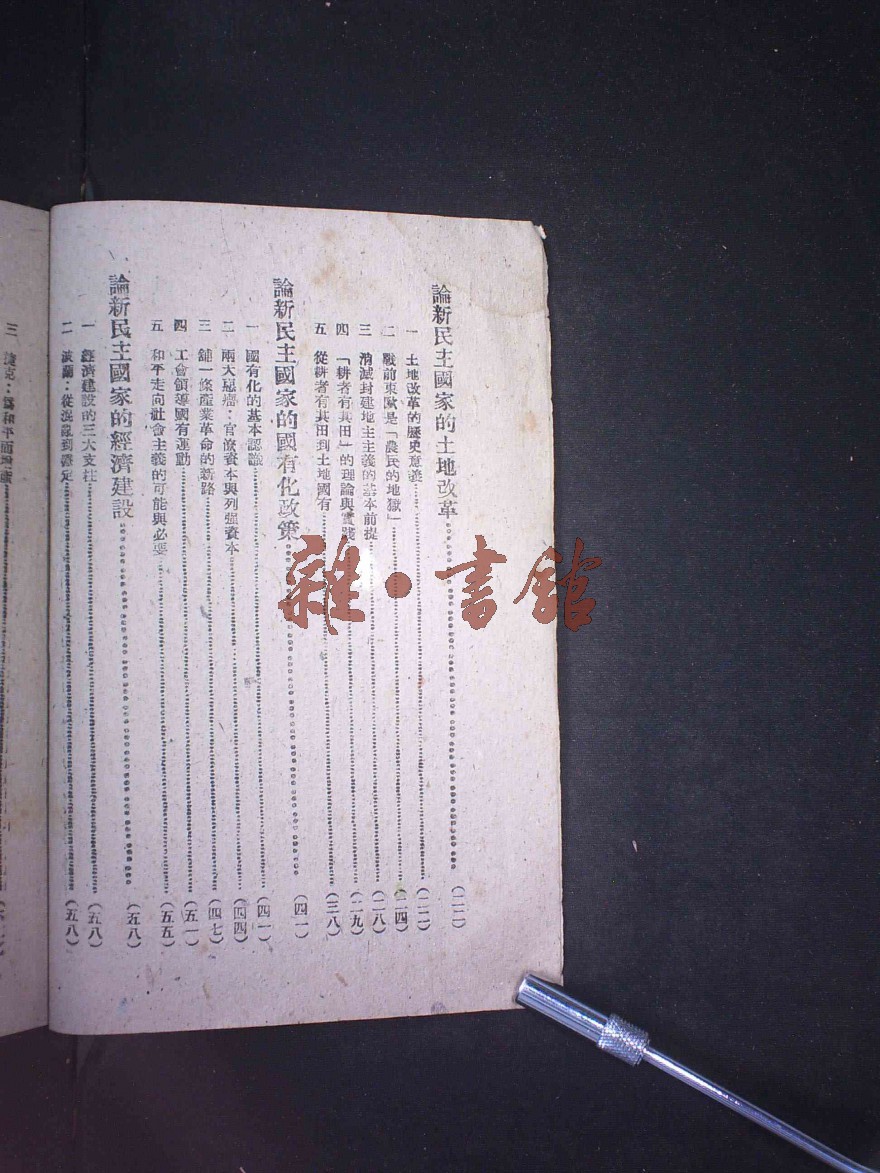 論新民主國家的土地改革（二二）
一 土地改革的歷史意義（二二）
二 戰前東歐是「農民的地獄」（二四）
三 消滅封建地主主義的基本前提（二八）
四 「耕者有其田」的理論與實踐（二九）
五 從耕者有其田到土地國有（三八）
論新民主國家的國有化政策（四一）
一 國有化的基本認識（四一）
二 兩大惡瘤：官僚資本與列強資本（四四）
三 舖一條產業革命的新路（四七）
四 工會領導國有運動（五一）
五 和平走向社會主義的可能與必要（五五）
論新民主國家的經濟建設（五八）
一 經濟建設的三大支柱（五八）
二 波蘭：從混亂到穩定（五八）
三 捷克：為和平而
雜·書館